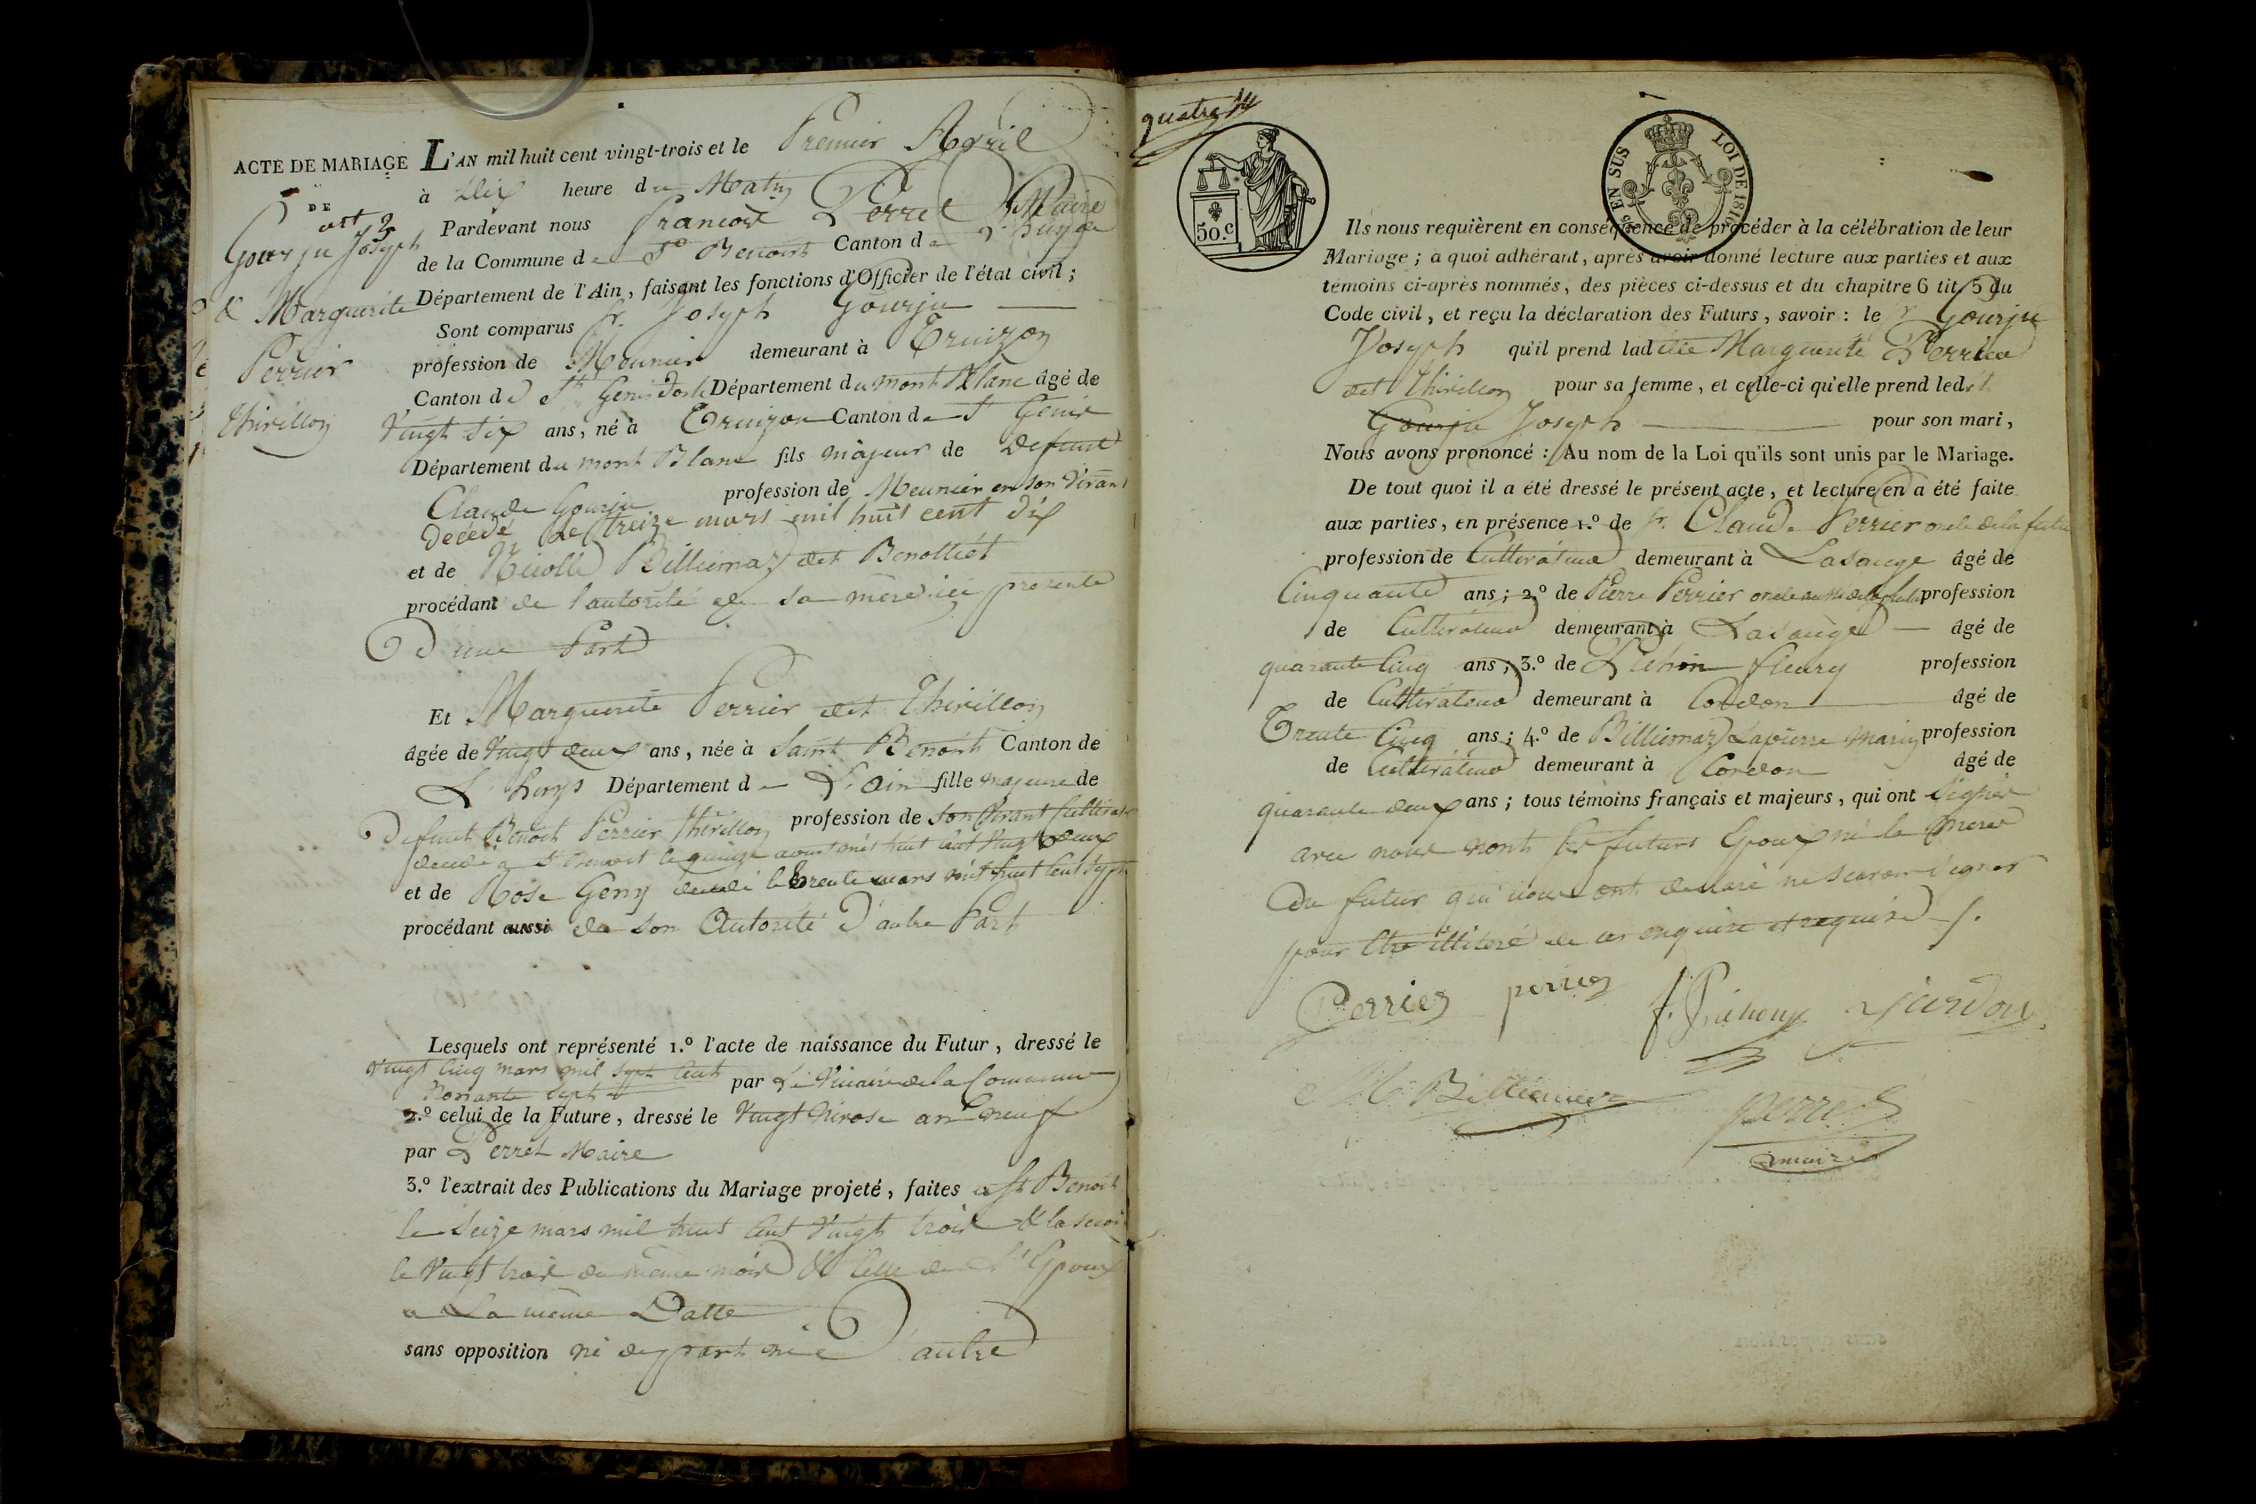 ACTE DE MARIAGE
DE
art 3
Gourju Joseph
& Marguerite
Perrier
thirillon
L'AN mil huit cent vingt-trois et le Premier Avril
à Dix heure du Matin
Pardevant nous francois Perret Maire
de la Commune de St Benoit Canton de L'huys
Département de l'Ain, faisant les fonctions d'Officier de l'état civil;
Sont comparus sr. Joseph Gourju
profession de Meunier demeurant à Truizon
Canton de St Genis Département du mont Blanc âgé de
Vingt Six ans, né à Truizon Canton de St Genis
Département du mont Blanc fils majeur de defunt
Claude Gourju profession de Meunier en son vivant
décédé le treize mars mil huit cent dix
et de Nicolle Billiemaz dit Benottiet
procédant de l'autorité de sa mère ici presente
D'une Part
Et Marguerite Perrier dit Thirillon
âgée de Vingt deux ans, née à Saint Benoit Canton de
L'huys Département de L'ain fille majeure de
Defunt Benoit Perrier thirillon profession de son vivant Cultivateur
décédé a St Benoit le quinze aout mil huit cent vingt deux
et de Rose Geny décédé le trente mars mil huit cent sept
procédant aussi de son Autorité D'autre Part
Lesquels ont représenté 1.º l'acte de naissance du Futur, dressé le
Vingt Cinq mars mil Sept Cent
Nonante Sept par Le Vicaire de la Commune
2.º celui de la Future, dressé le Vingt Nivose an neuf
par Perret Maire
3.º l'extrait des Publications du Mariage projeté, faites a St Benoit
le Seize mars mil huit Cent Vingt trois & la
le Vingt trois du même mois & Celle de L' Epoux
a La même Datte
sans opposition ni de part ni d'autre
quatre
50.c
EN SUS LOI DE 1816
Ils nous requièrent en conséquence de procéder à la célébration de leur
Mariage; a quoi adhérant, après avoir donné lecture aux parties et aux
témoins ci-après nommés, des pièces ci-dessus et du chapitre 6 tit 5 du
Code civil, et reçu la déclaration des Futurs, savoir: le sr Gourju
Joseph qu'il prend ladite Marguerite Perrier
dit Thirillon pour sa femme, et celle-ci qu'elle prend ledit
Gourju Joseph pour son mari,
Nous avons prononcé: Au nom de la Loi qu'ils sont unis par le Mariage.
De tout quoi il a été dressé le présent acte, et lecture en a été faite
aux parties, en présence 1.º de sr. Claude Perrier oncle de la future
profession de Cultivateur demeurant à Lasauge âgé de
Cinquante ans; 2.º de Pierre Perrier oncle aussi de la future profession
de Cultivateur demeurant à Lasauge âgé de
quarante Cinq ans; 3.º de fleury profession
de Cultivateur demeurant à Cordon âgé de
Trente Cinq ans; 4.º de Billiemaz Lapierre Marin profession
de Cultivateur demeurant à Cordon âgé de
quarante deux ans; tous témoins français et majeurs, qui ont Signés
avec nous nont les futurs Epoux ni la mere
du futur qui nous ont declaré ne scavoir signer
pour etre illiteré de ce enquise et requise
Perrier perrier
M Billiemaz perret
maire